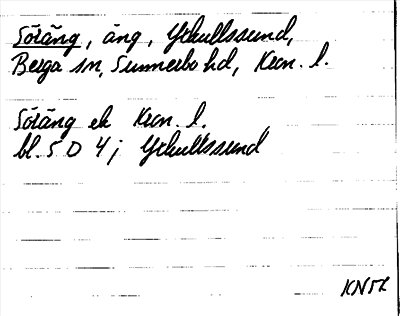 Söräng, äng, Ykullssund,
Berga sn, Sunnerbo hd, Kron. l.
Söräng ek Kron. l.
bl. 5 D 4; Ykullssund
KN57